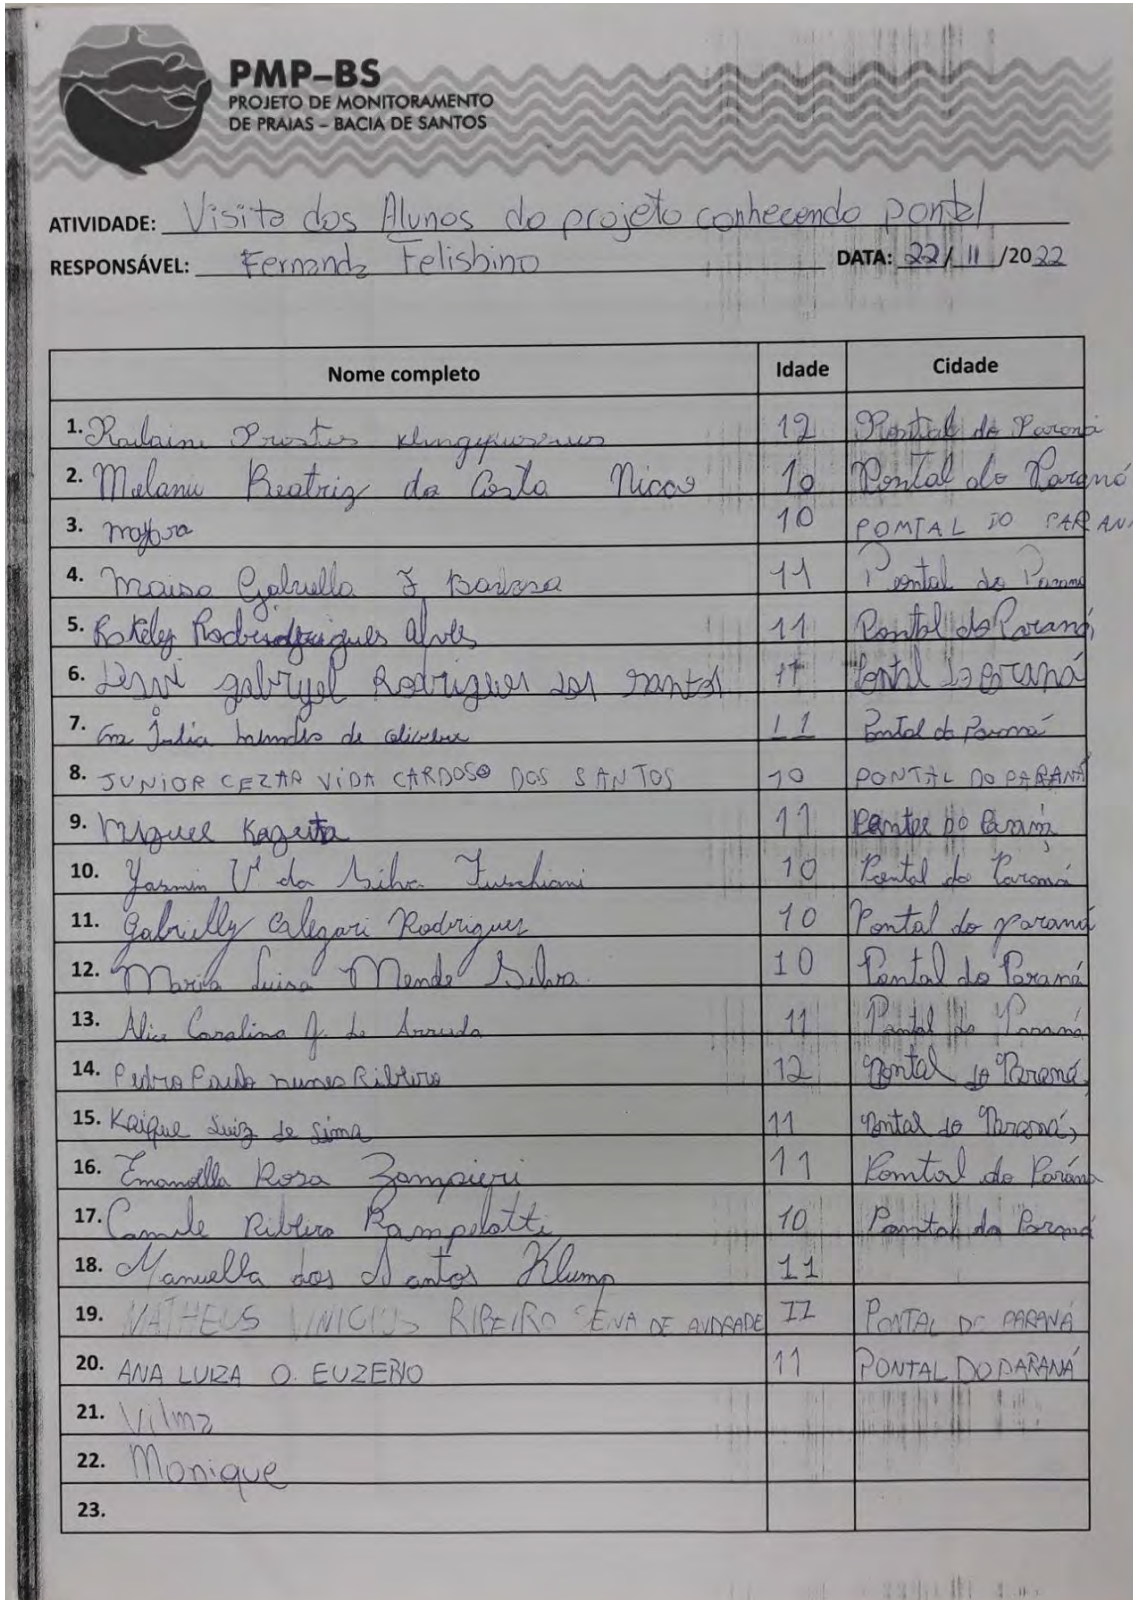 PMP-BS
PROJETO DE MONITORAMENTO
DE PRAIAS – BACIA DE SANTOS
ATIVIDADE: Visita dos Alunos do projeto conhecendo pontal
RESPONSÁVEL: Fernanda Felisbino DATA: 22/11/2022
Nome completo Idade Cidade
1. 12 Pontal do Paraná
2. Melanie Beatriz da Costa 10 Pontal do Paraná
3. 10 POMTAL DO PARANÁ
4. Maisa Gabriella F 11 Pontal do Paraná
5. Alves 11 Pontal do Paraná
6. gabryel Rodrigues dos santos 11 Pontal
7. Júlia de 11 Pontal do Paraná
8. JUNIOR CEZAR VIDA CARDOSO DOS SANTOS 10 PONTAL DO PARANÁ
9. Miguel 11
10. Yasmin V da Silva 10 Pontal do Paraná
11. Gabrielly Calegari Rodrigues 10 Pontal do paraná
12. Maria Luisa Mende Silva. 10 Pontal do Paraná
13. Alice Carolina de Arruda 11 Pontal do Paraná
14. Pedro Paulo nunes Ribeiro 12 Pontal do Paraná
15. Kaique Luiz de Lima 11 Pontal do Paraná
16. Emanoella Rosa Zampieri 11 Pomtal do Paraná
17. Camile Ribeiro Rampelotti 10 Pomtal do Paraná
18. Manuella dos Santos Klump 11
19. MATHEUS VINICIUS RIBEIRO SENA DE ANDRADE 11 PONTAL DO PARANÁ
20. ANA LUIZA O. EUZEBIO 11 PONTAL DO PARANÁ
21. Vilma
22. Monique
23.